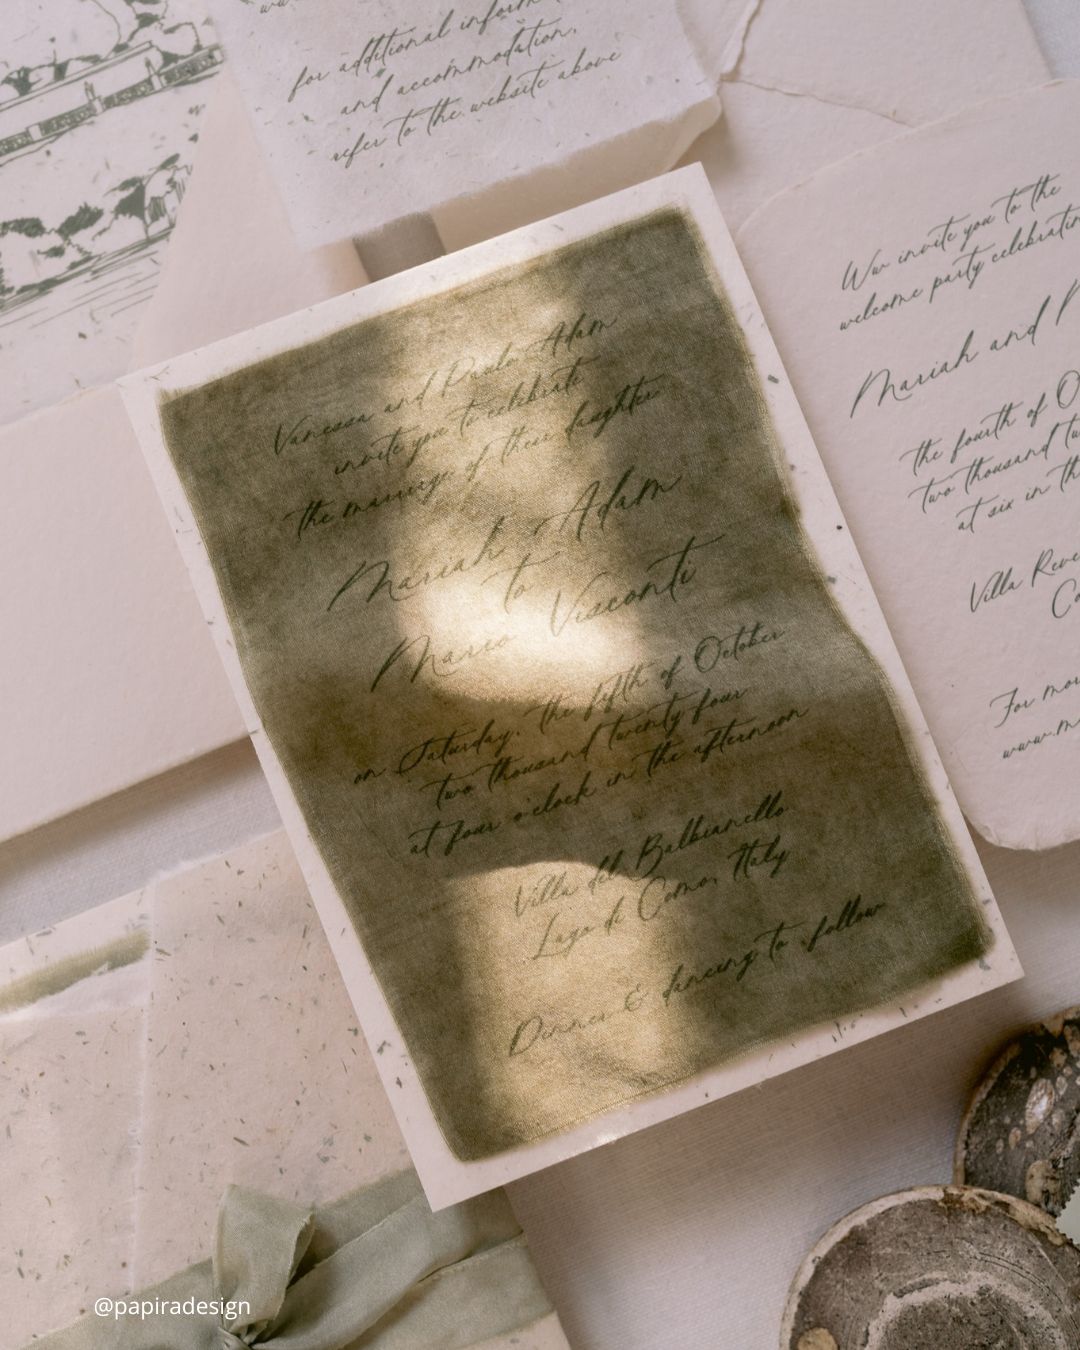 for additional inform
and accommodation,
refer to the website above
Vanessa and Paulo Adam
invite you to celebrate
the marriage of their daughter
Mariah Adam
to
Mario Visconti
on Saturday, the fifth of October
two thousand twenty four
at four o'clock in the afternoon
Villa del Balbianello
Lago di Como, Italy
Dinner & dancing to follow
We invite you to the
welcome party celebratin
Mariah and M
the fourth of O
two thousand tw
at six in th
Villa Reve
Co
For mor
www.m
@papiradesign